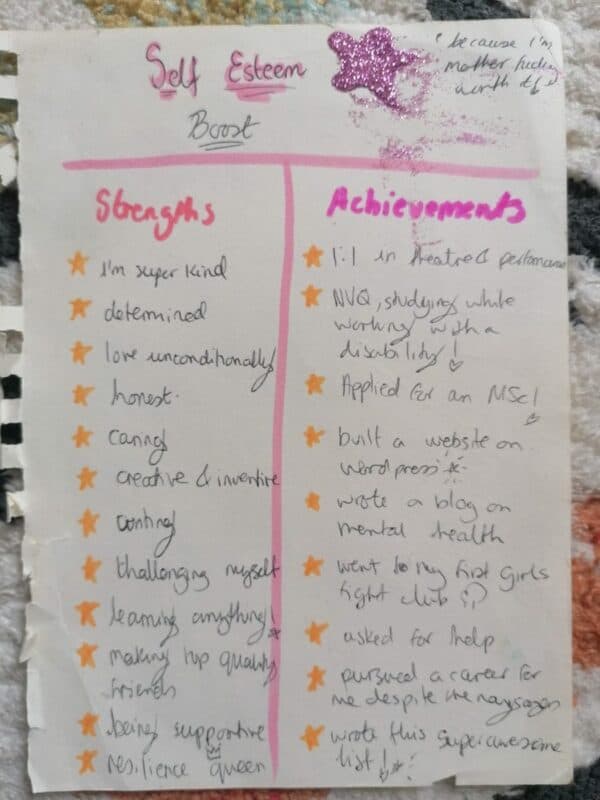 Self Esteem
Boost
"because I'm
mother
worth it"
Strengths
I'm super kind
determined
love unconditionally
honest.
caring
creative & inventive
challenging myself
learning anything!
making top quality
friends
being supportive
resilience queen
Achievements
1:1 in theatre & performance
NVQ, studying while
working with a
disability!
Applied for an MSc!
built a website on
wordpress
wrote a blog on
mental health
went to my first girls
fight club
asked for help
pursued a career for
me despite the naysayers
wrote this super awesome
list!